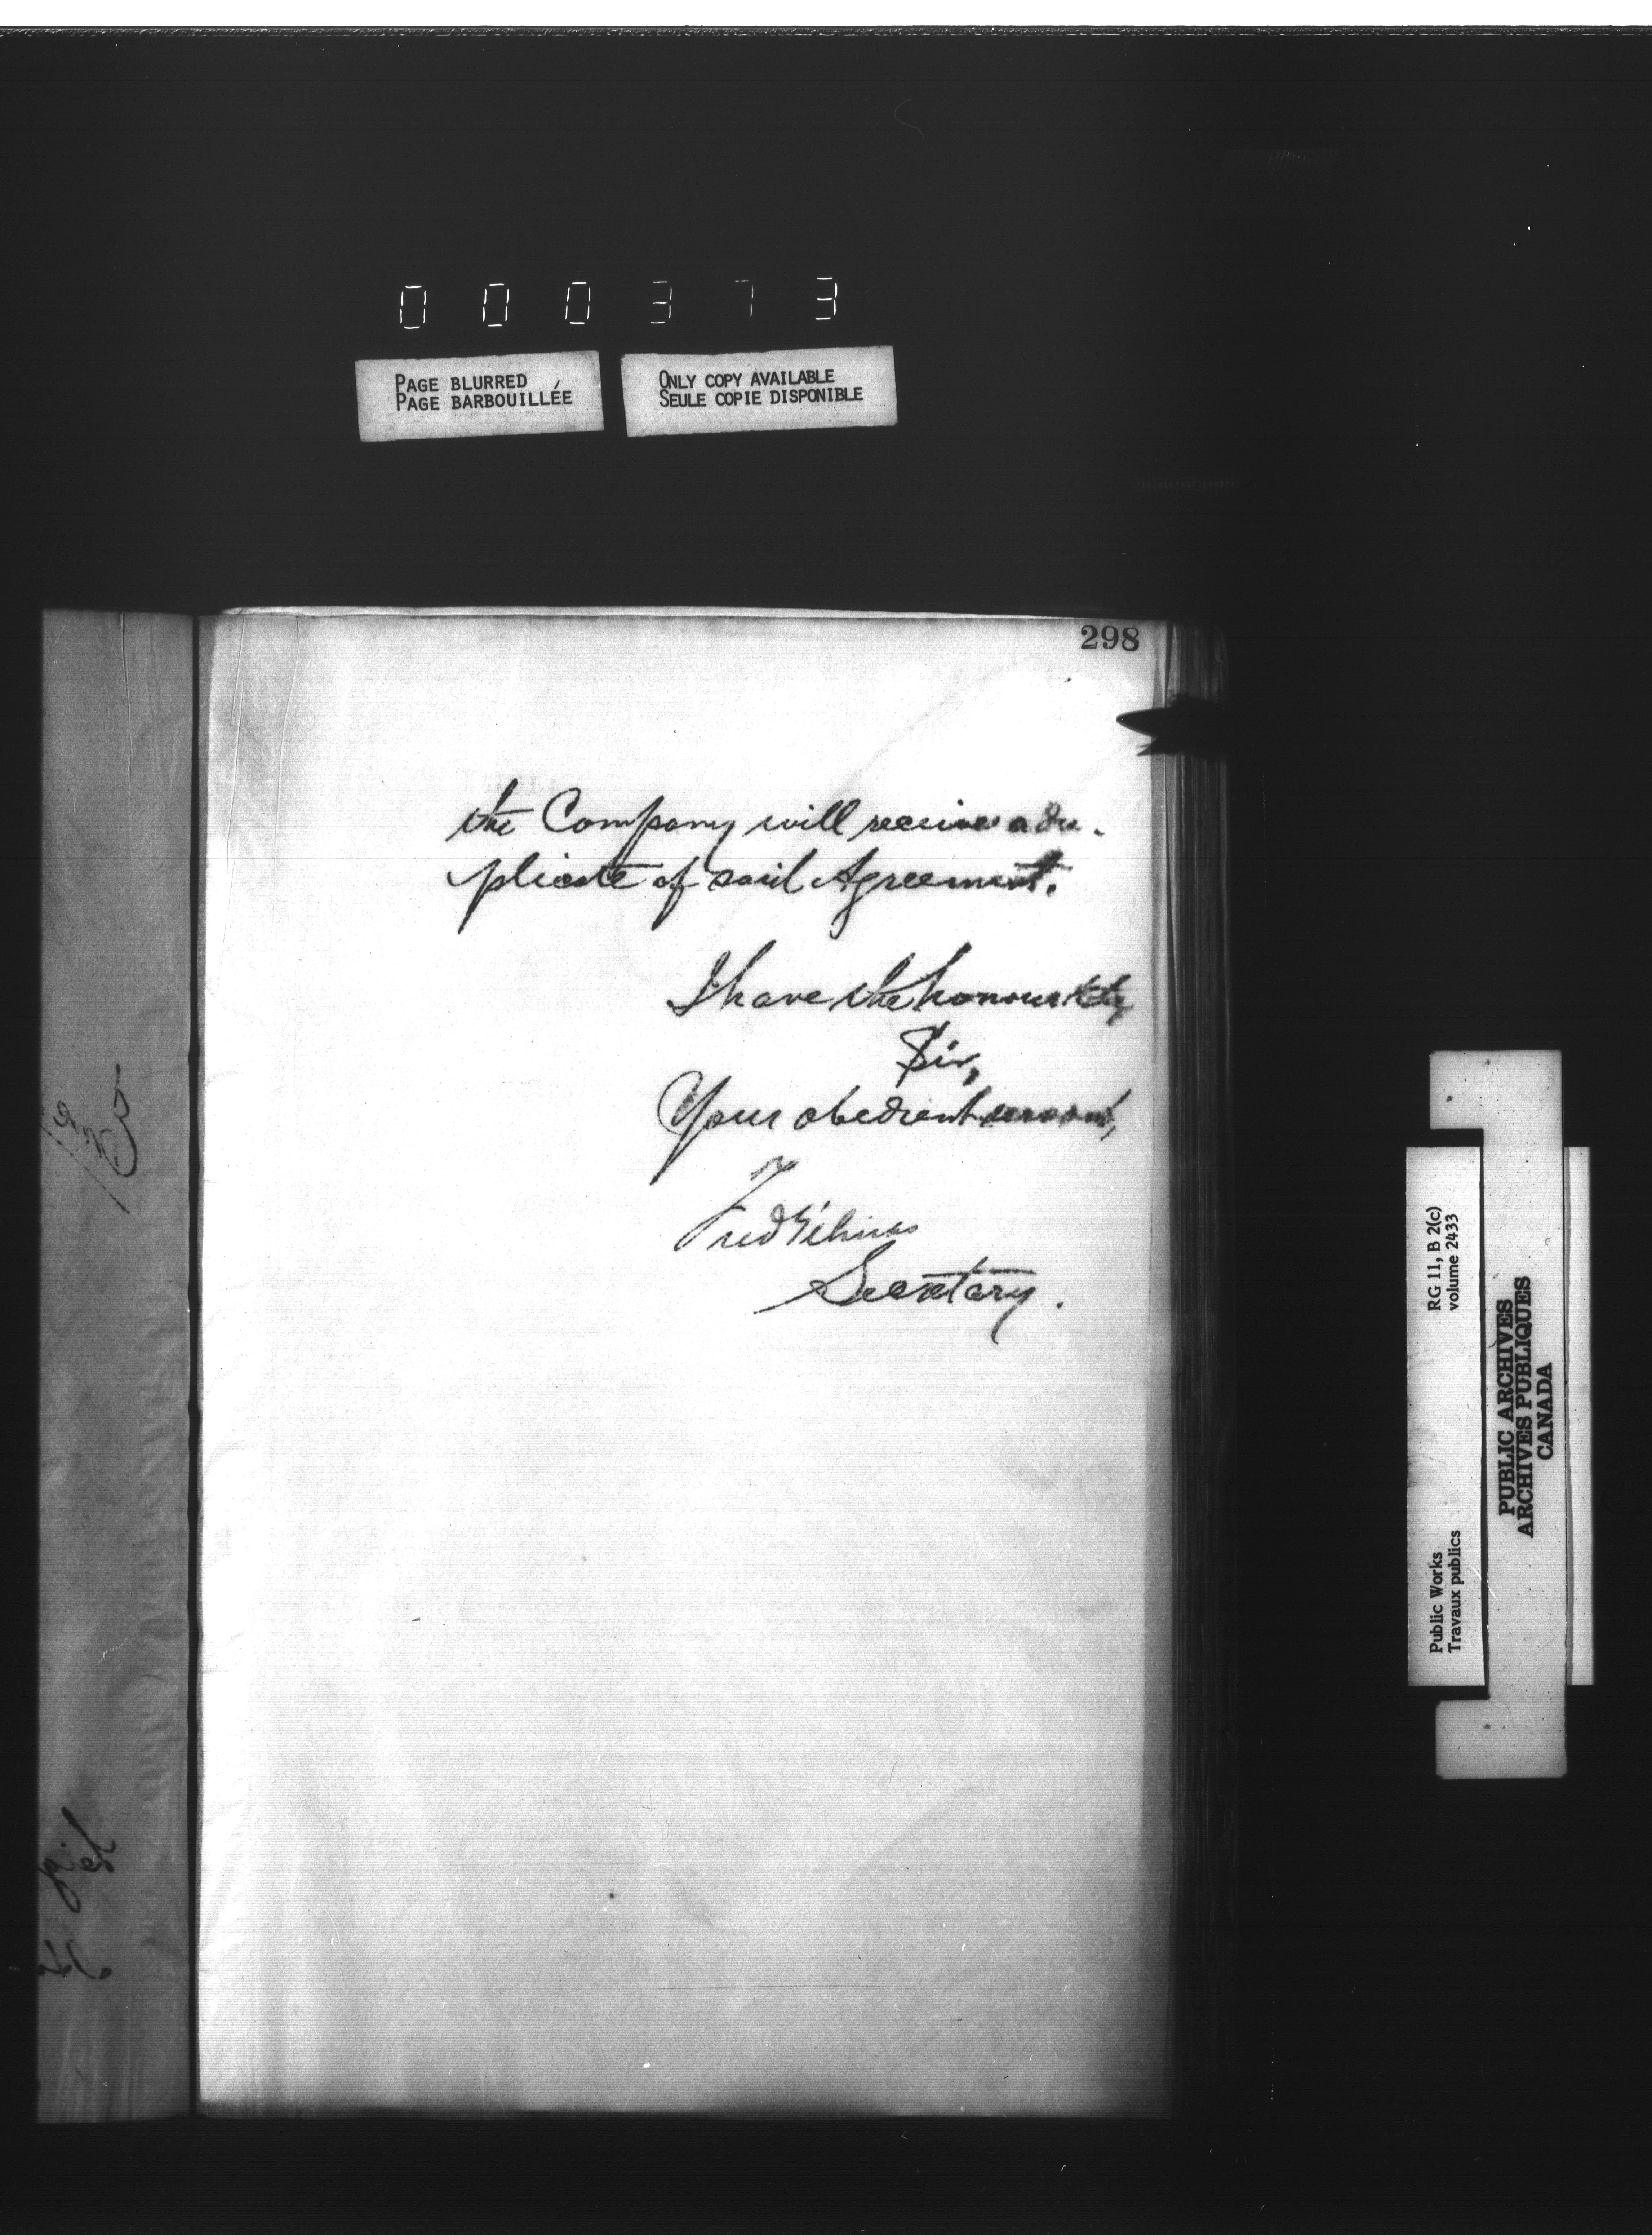 000373
PAGE BLURRED
PAGE BARBOUILLÉE
ONLY COPY AVAILABLE
SEULE COPIE DISPONIBLE
298
the Company will receive a du-
plicate of said Agreement.
I have the honour to be,
Sir,
Your obedient servant,
Fred Gélinas
Secretary.
RG 11, B 2(c)
volume 2433
Public Works
Travaux publics
PUBLIC ARCHIVES
ARCHIVES PUBLIQUES
CANADA